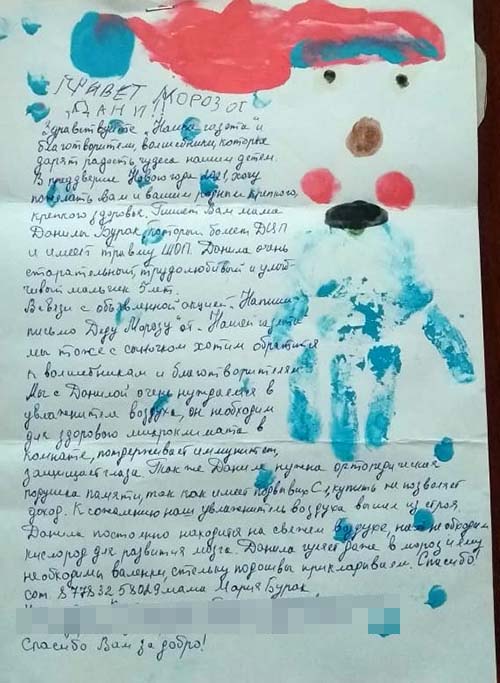 ПРИВЕТ МОРОЗ ОТ
ДАНИ!!
Здравствуйте „Наша газета" и
благотворители, волшебники, которые
дарят радость чудеса нашим детям.
В преддверии Нового года 2021, хочу
пожелать Вам и вашим родным крепкого,
крепкого здоровья. Пишет Вам мама
Данилы Бурак, который болеет ДЦП
и имеет травму ШОП. Данила очень
старательный, трудолюбивый и улыб-
чивый мальчик 5 лет.
В связи с объявленной акцией „Напиши
письмо Деду Морозу" от „Нашей газеты
мы тоже с сыночком хотим обратится
к волшебникам и благотворителям
Мы с Данилой очень нуждаемся в
увлажнителе воздуха, он необходим
для здорового микроклимата в
комнате, поддерживает иммунитет,
защищает глаза. Так же Даниле нужна ортопедическая
подушка памяти, так как имеет подвывих С1, купить не позволяет
доход. К сожалению наш увлажнитель воздуха вышел из строя.
Данила постоянно находится на свежем воздухе, нам необходим
кислород для развития мозга. Данила гуляет даже в мороз и ему
необходимы валенки, стельку подошвы прикладываем. Спасибо!
сот 8 778 32 мама Мария Бурак,
Спасибо Вам за добро!